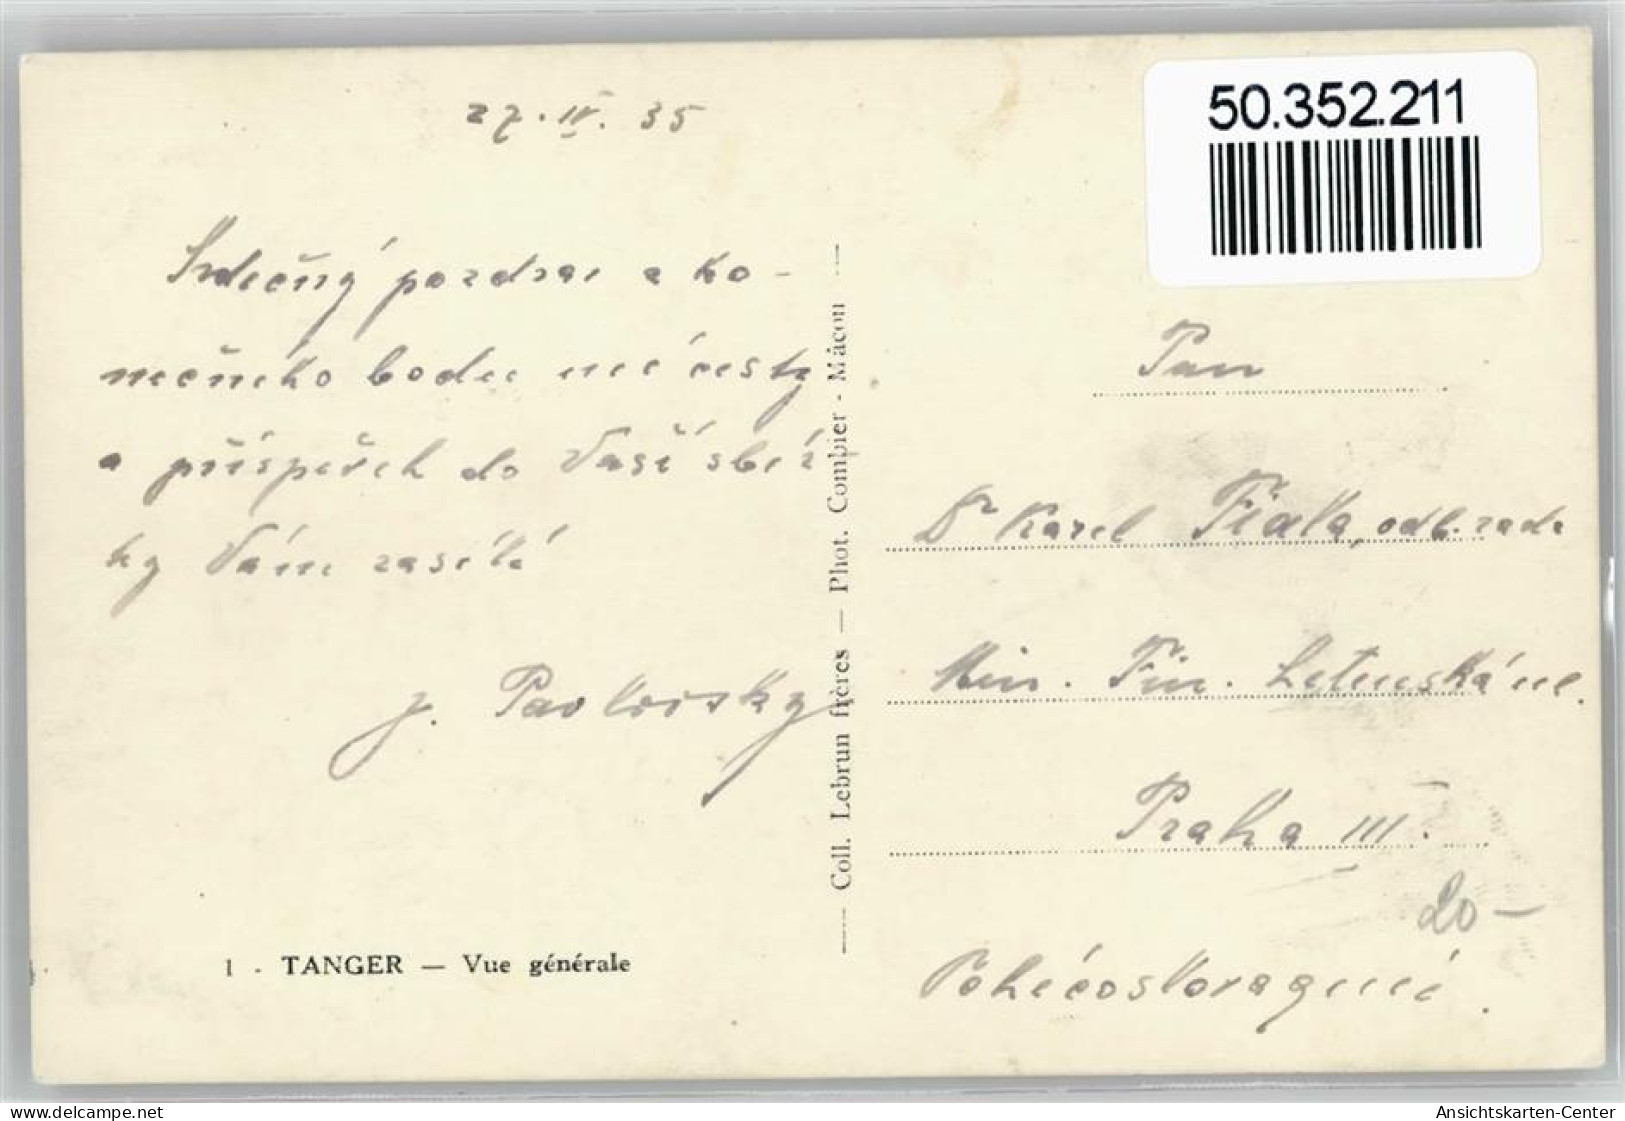 27. IV. 35
Srdečný pozdrav a ko-
nečného bodu mé cesty
a příspěvek do Vaší sbír-
ky Vám zasílá
J. Pavlovský
1 - TANGER — Vue générale
— Coll. Lebrun frères — Phot. Combier - Mâcon —
50.352.211
Pan
Dr Karel Fiala, odb. rada
Min. Fin. Letenská ul.
Praha III.
20 -
Tchécoslovaquie.
www.delcampe.net
bonnoure
Ansichtskarten-Center